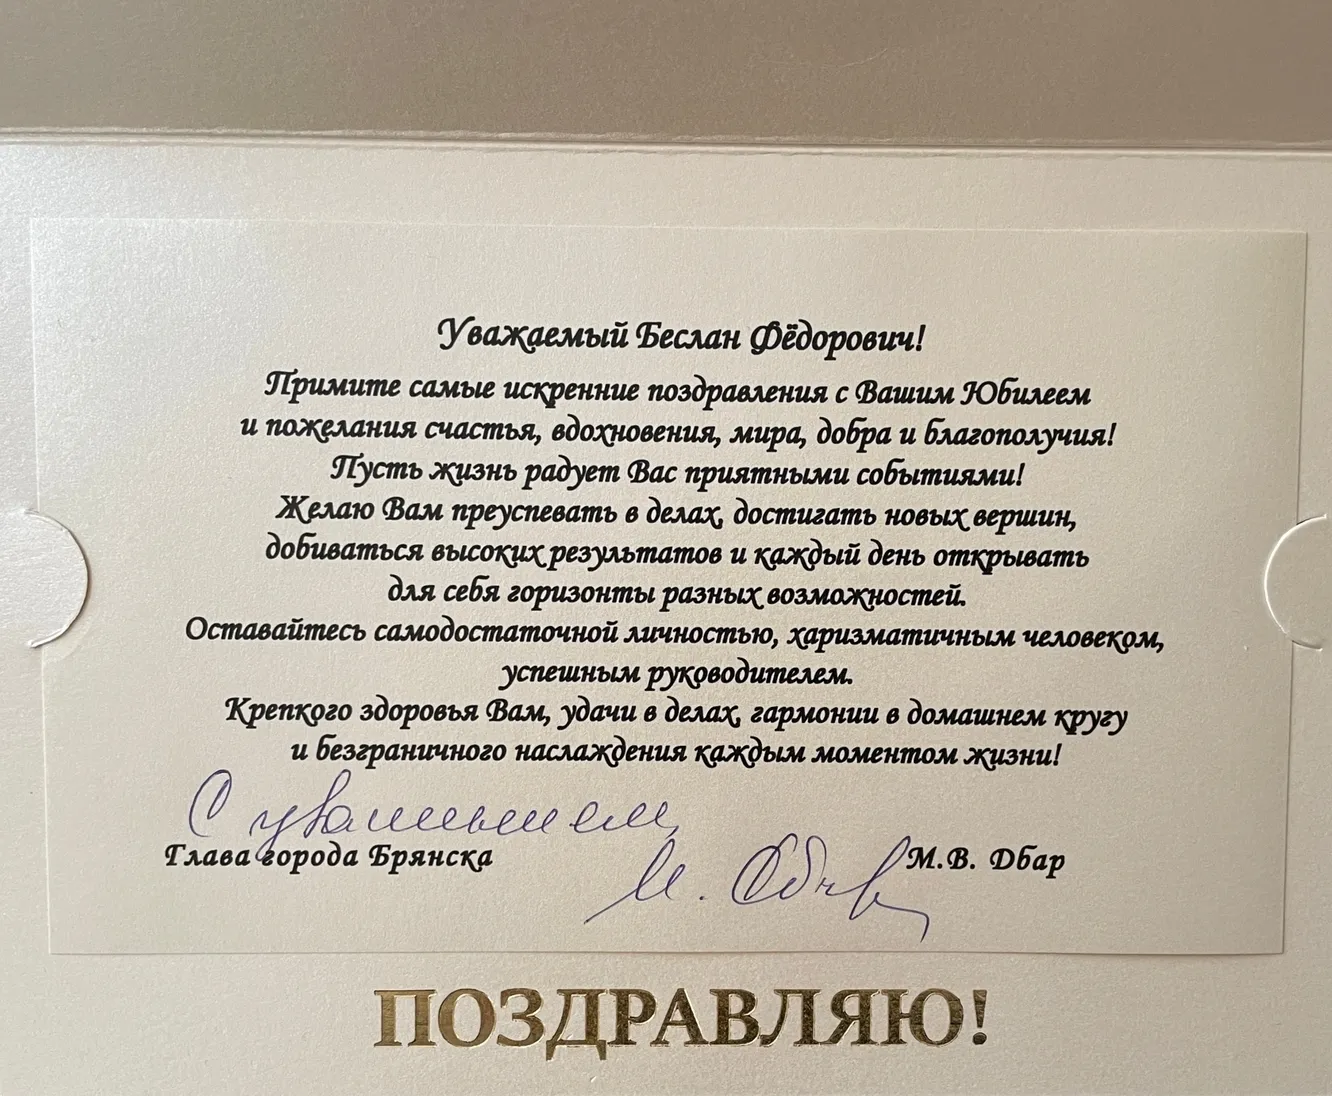 Уважаемый Беслан Фёдорович!
Примите самые искренние поздравления с Вашим Юбилеем
и пожелания счастья, вдохновения, мира, добра и благополучия!
Пусть жизнь радует Вас приятными событиями!
Желаю Вам преуспевать в делах, достигать новых вершин,
добиваться высоких результатов и каждый день открывать
для себя горизонты разных возможностей.
Оставайтесь самодостаточной личностью, харизматичным человеком,
успешным руководителем.
Крепкого здоровья Вам, удачи в делах, гармонии в домашнем кругу
и безграничного наслаждения каждым моментом жизни!
С уважением,
Глава города Брянска М.В. Дбар
М. Дбар
ПОЗДРАВЛЯЮ!